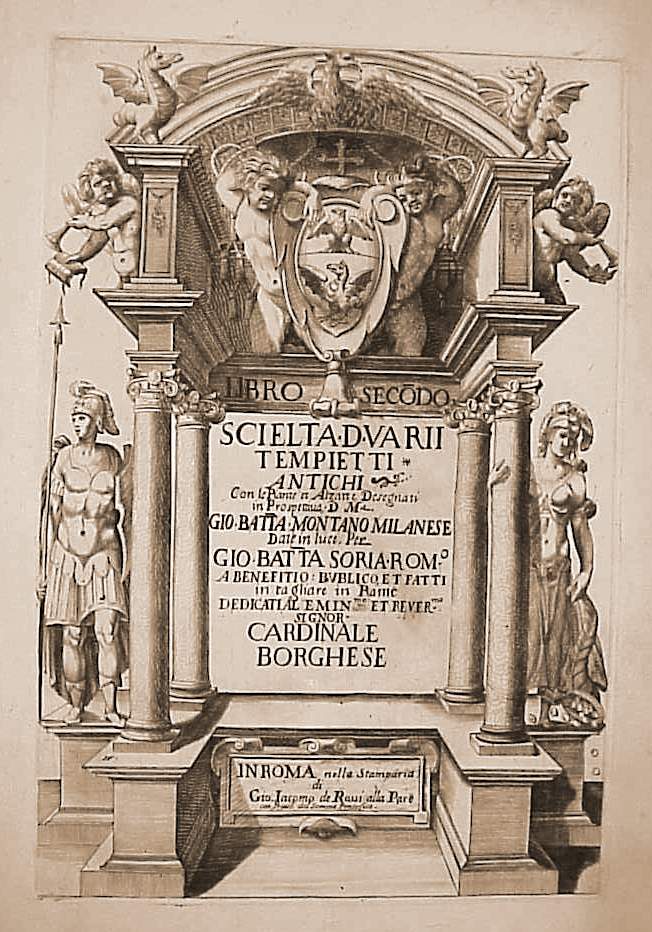 LIBRO SECŌDO
SCIELTA·D·VARII
TEMPIETTI
ANTICHI
Con le Piante et Alzatte Desegnati
in Prospettiua D M
GIO·BATTA·MONTANO MILANESE
Date in luce Per
GIO·BATTA SORIA·ROM.º
A BENEFITIO: BVBLICO, ET FATTI
in tagliare in Rame
DEDICATI AL EMIN.mo ET REVER.mo
SIGNOR·
CARDINALE
BORGHESE
IN ROMA nella Stamparia
di
Gio. Iacomo de Rossi alla Pace